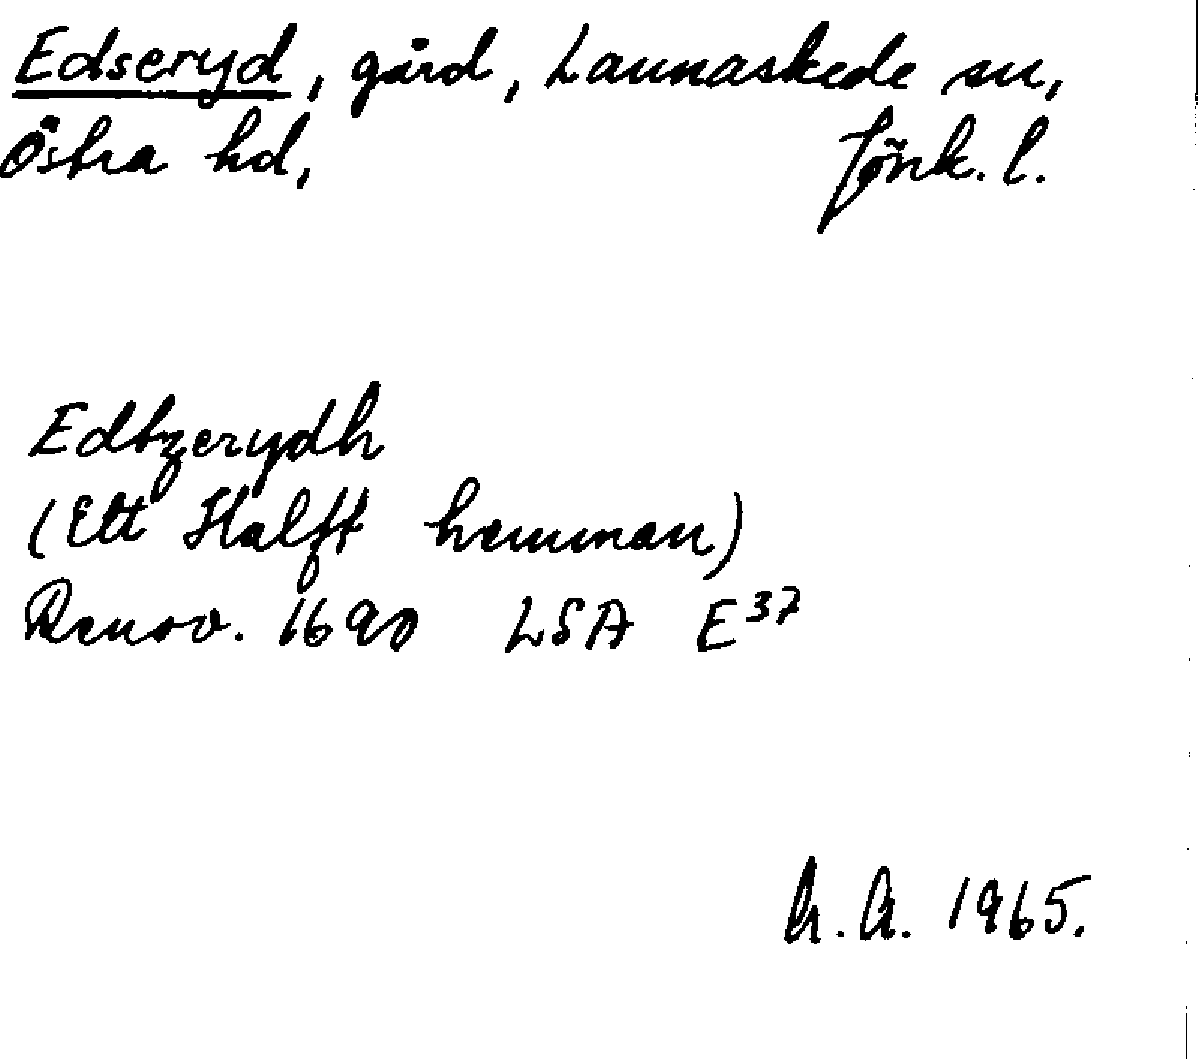 Edseryd, gård, Lannaskede sn,
Östra hd, Jönk. l.
Edtzerydh
(Ett Halfft hemman)
Renov. 1690 LSA E37
h. A. 1965.